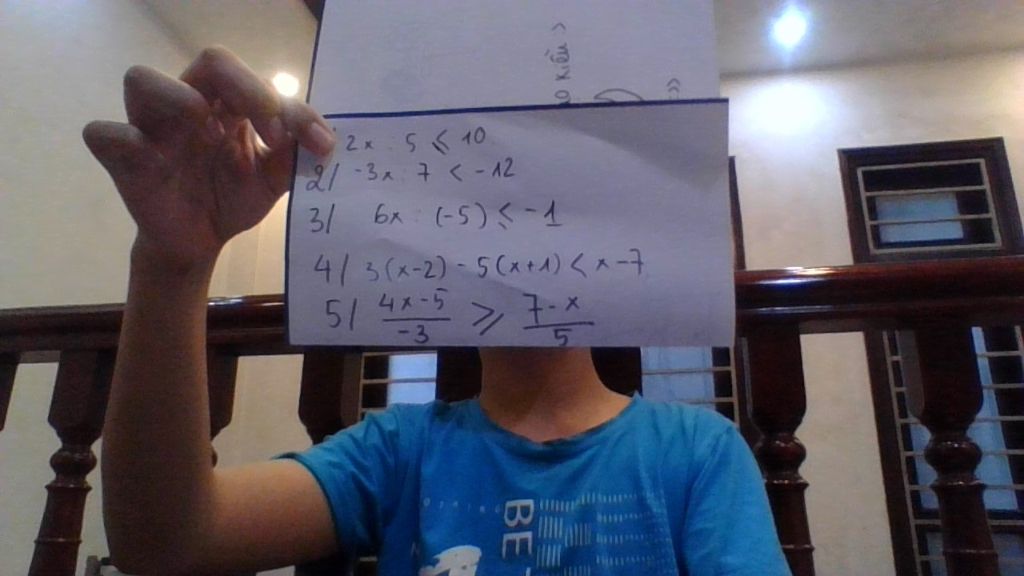 kiểu
2x : 5 ⩽ 10
2/ -3x : 7 < -12
3/ 6x : (-5) ⩽ -1
4/ 3(x-2) - 5(x+1) < x-7
5/ \frac{4x-5}{-3} ⩾ \frac{7-x}{5}
BE